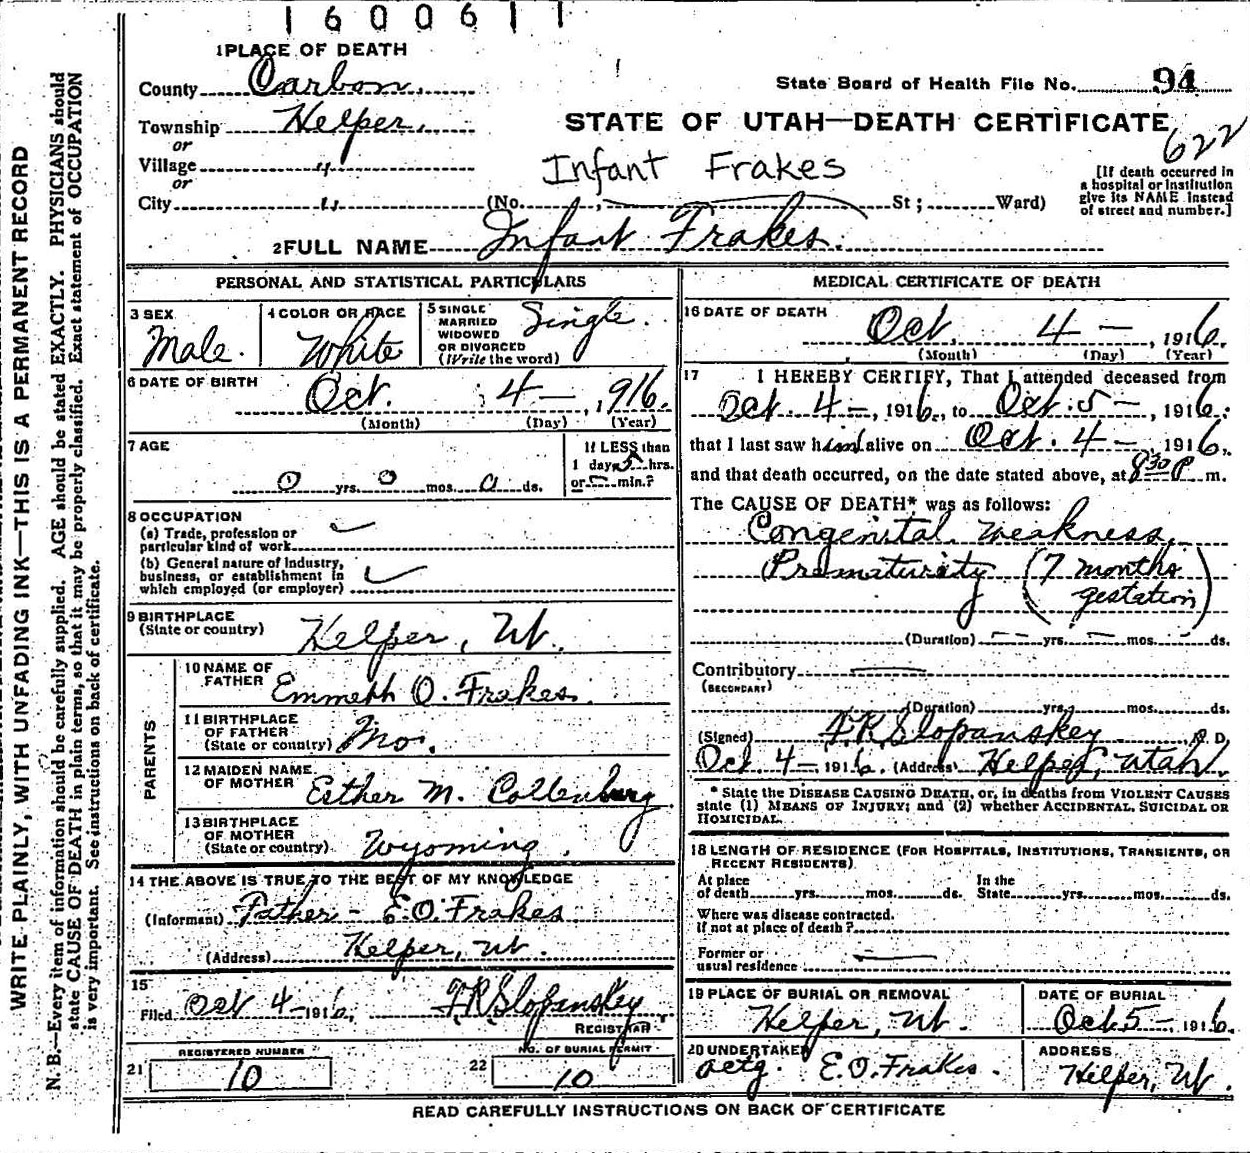 1600611
1 PLACE OF DEATH
County Carbon.
Township Helper.
or
Village "
or
City "
State Board of Health File No. 94
STATE OF UTAH—DEATH CERTIFICATE
622
Infant Frakes
(No. , St ; Ward)
[If death occurred in
a hospital or institution
give its NAME instead
of street and number.]
2 FULL NAME Infant Frakes.
PERSONAL AND STATISTICAL PARTICULARS
3 SEX
Male.
4 COLOR OR RACE
White
5 SINGLE
MARRIED
WIDOWED
OR DIVORCED
(Write the word)
Single.
6 DATE OF BIRTH
Oct. 4 — , 1916.
(Month) (Day) (Year)
7 AGE
0 yrs. 0 mos. 0 ds.
If LESS than
1 day, 5 hrs.
or — min.?
8 OCCUPATION
(a) Trade, profession or
particular kind of work
(b) General nature of industry,
business, or establishment in
which employed (or employer)
9 BIRTHPLACE
(State or country) Helper, Ut.
PARENTS
10 NAME OF
FATHER
Emmeth O. Frakes.
11 BIRTHPLACE
OF FATHER
(State or country) Mo.
12 MAIDEN NAME
OF MOTHER Esther M. Collenburg
13 BIRTHPLACE
OF MOTHER
(State or country) Wyoming.
14 THE ABOVE IS TRUE TO THE BEST OF MY KNOWLEDGE
(Informant) Father - E.O. Frakes
(Address) Helper, Ut.
15
Filed Oct 4 - 1916, F.R. Slopanskey
REGISTRAR
REGISTERED NUMBER
21 10
NO. OF BURIAL PERMIT
22 10
MEDICAL CERTIFICATE OF DEATH
16 DATE OF DEATH
Oct. 4 — , 1916
(Month) (Day) (Year)
17 I HEREBY CERTIFY, That I attended deceased from
Oct. 4 —, 1916, to Oct. 5 —, 1916;
that I last saw him alive on Oct. 4 —, 1916,
and that death occurred, on the date stated above, at 8 30 P. m.
The CAUSE OF DEATH* was as follows:
Congenital weakness,
Prematurity (7 months
gestation)
(Duration) — yrs. — mos. - ds.
Contributory
(SECONDARY)
(Duration) yrs. mos. ds.
(Signed) F.R. Slopanskey M. D.
Oct. 4 —, 1916. (Address) Helper, Utah.
* State the DISEASE CAUSING DEATH, or, in deaths from VIOLENT CAUSES
state (1) MEANS OF INJURY; and (2) whether ACCIDENTAL, SUICIDAL OR
HOMICIDAL.
18 LENGTH OF RESIDENCE (FOR HOSPITALS, INSTITUTIONS, TRANSIENTS, OR
RECENT RESIDENTS)
At place
of death yrs. mos. ds.
In the
State yrs. mos. ds.
Where was disease contracted.
if not at place of death?
Former or
usual residence —
19 PLACE OF BURIAL OR REMOVAL
Helper, Ut.
DATE OF BURIAL
Oct 5 —, 1916.
20 UNDERTAKER
actg. E.O. Frakes.
ADDRESS
Helper, Ut.
READ CAREFULLY INSTRUCTIONS ON BACK OF CERTIFICATE
WRITE PLAINLY, WITH UNFADING INK—THIS IS A PERMANENT RECORD
N. B.—Every item of information should be carefully supplied. AGE should be stated EXACTLY. PHYSICIANS should
state CAUSE OF DEATH in plain terms, so that it may be properly classified. Exact statement of OCCUPATION
is very important. See instructions on back of certificate.